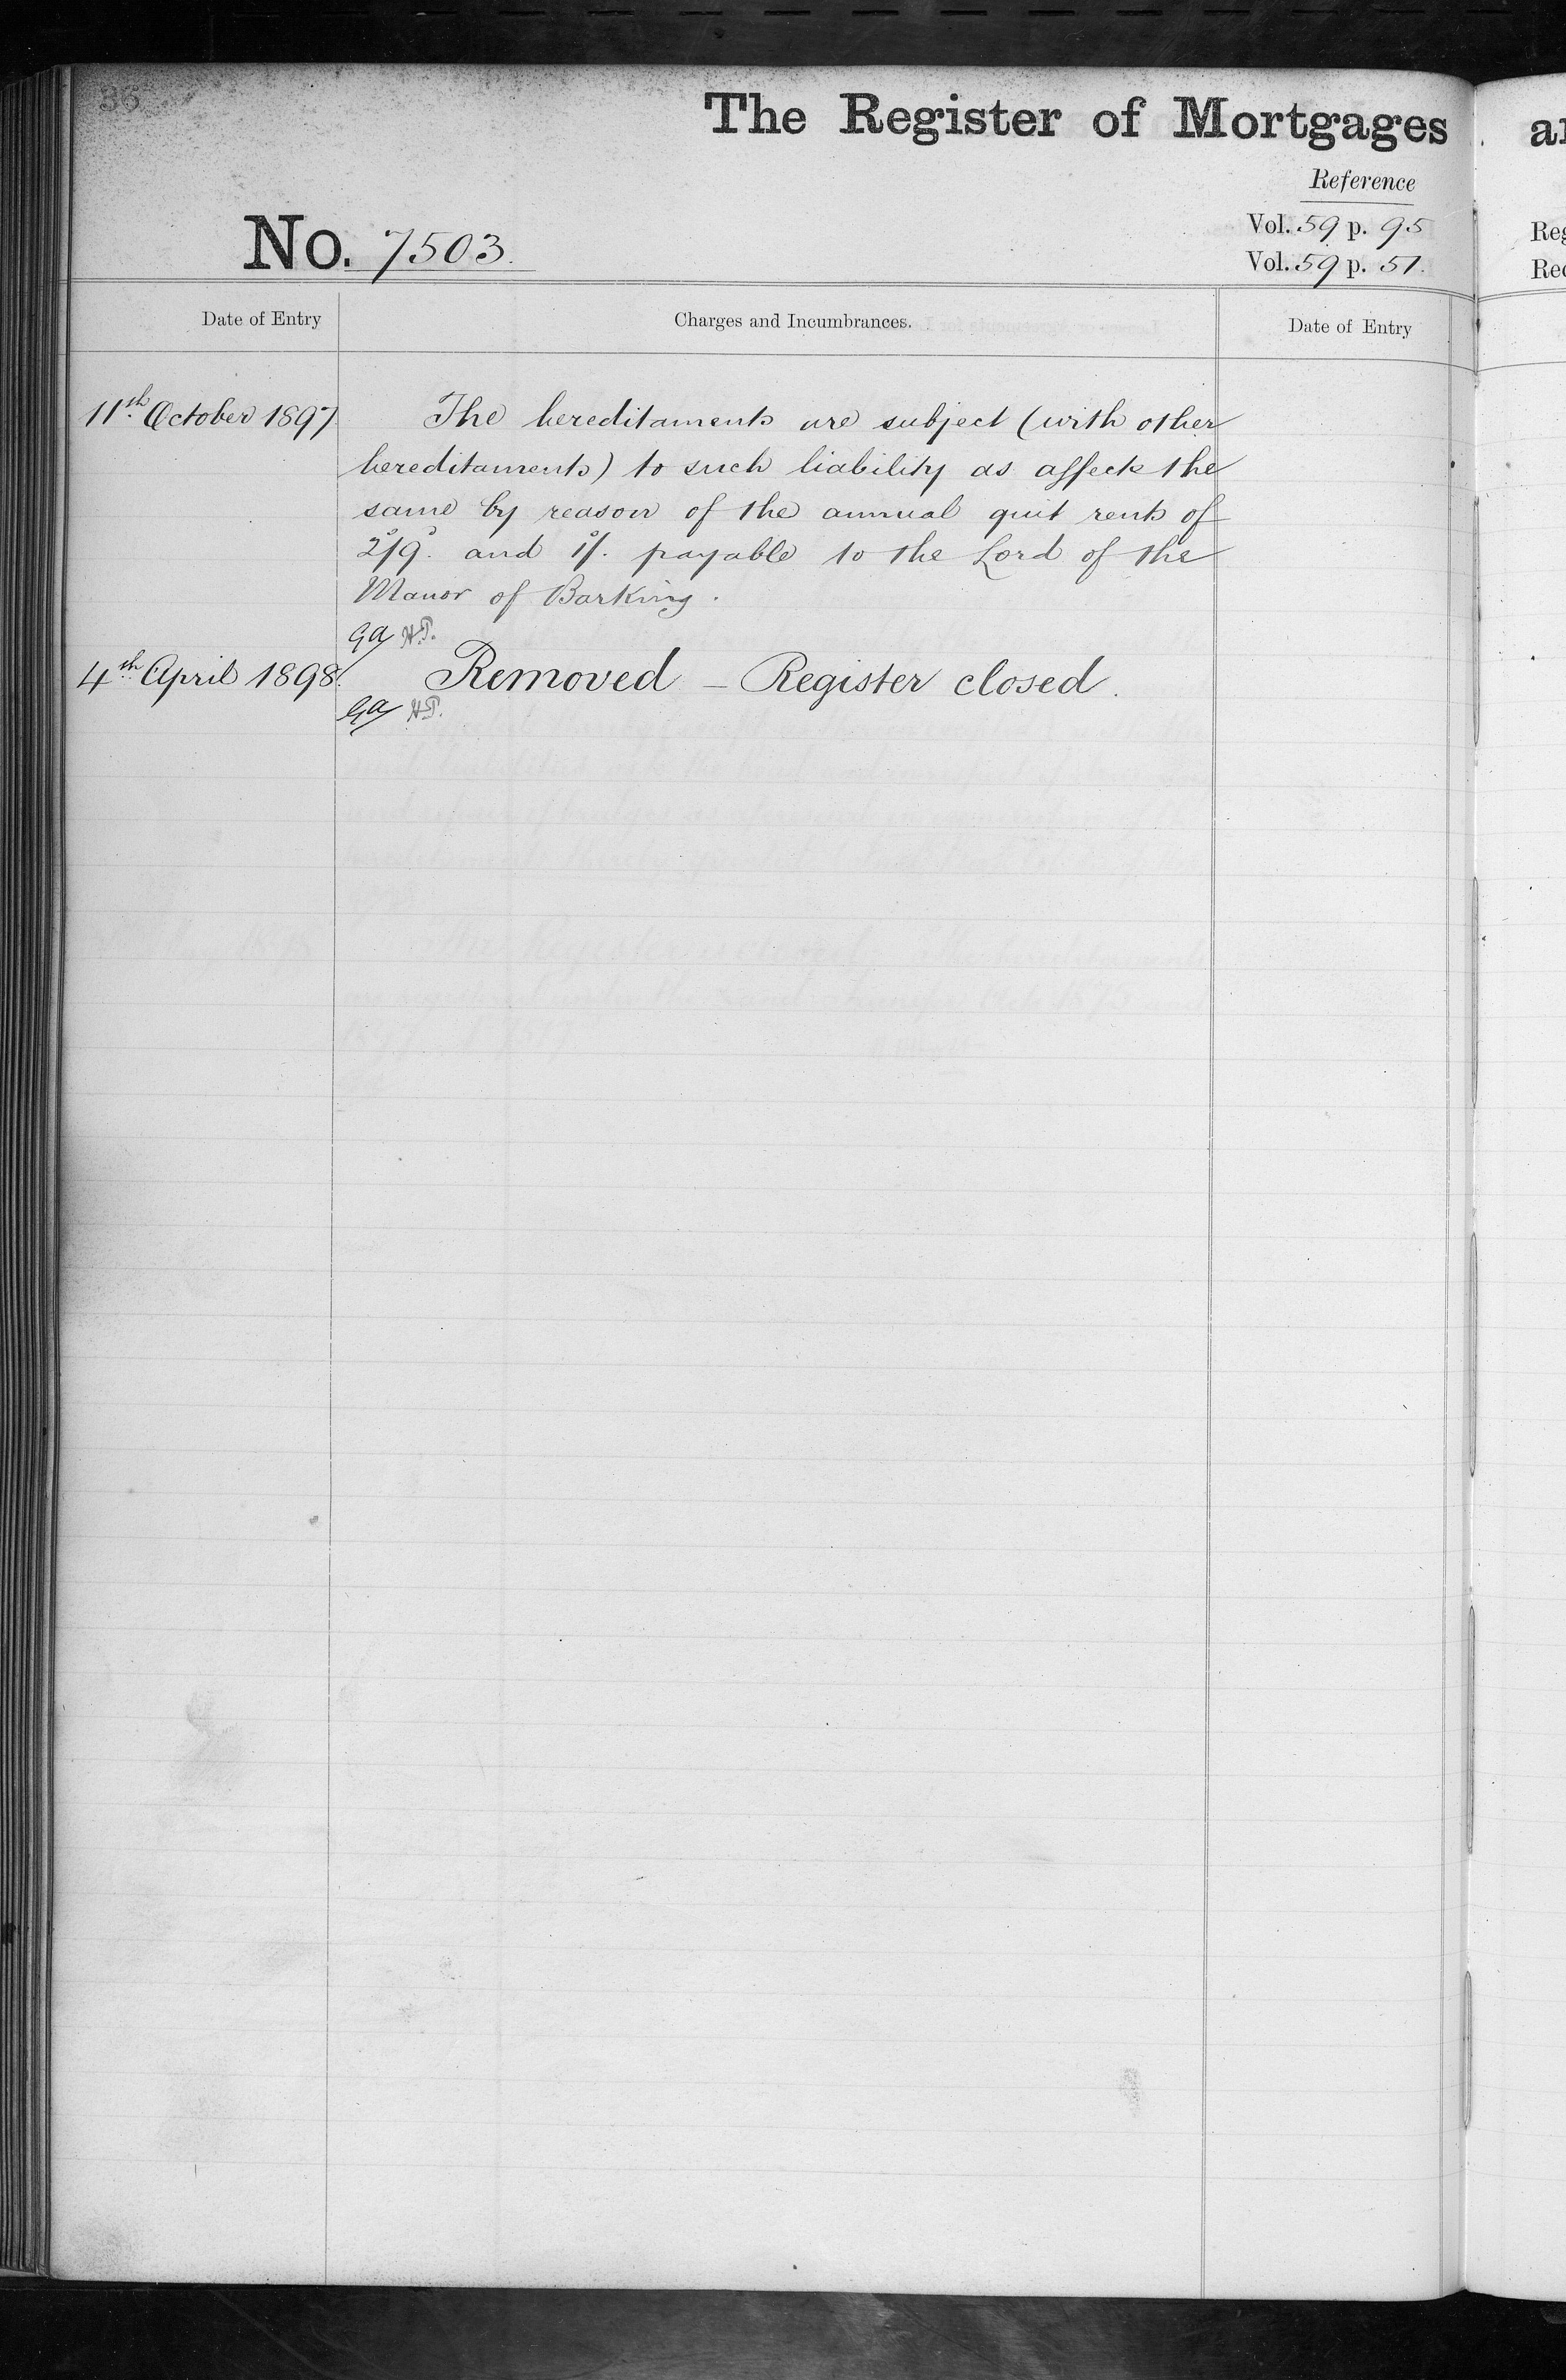 36
The Register of Mortgages
Reference
No. 7503.
Vol. 59 p. 95
Vol. 59 p. 51.
Date of Entry
Charges and Incumbrances.
Date of Entry
11th October 1897
The hereditaments are subject (with other
hereditaments) to such liability as affects the
same by reason of the annual quit rents of
2s/9d. and 1s/. payable to the Lord of the
Manor of Barking.
GA HP.
4th April 1898.
Removed – Register closed.
GA HP.